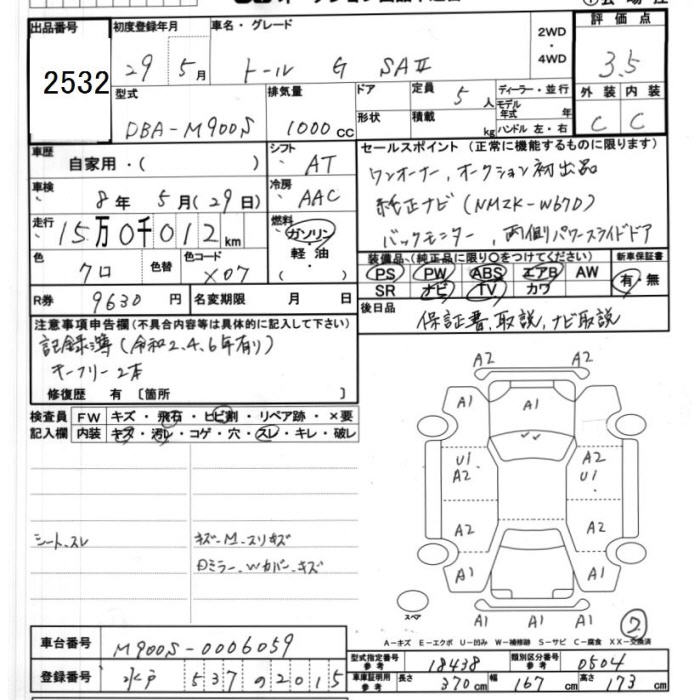 出品番号 初度登録年月 車名・グレード 2WD・4WD 評価点
2532 29 5月 トール G SAⅡ 3.5
型式 排気量 ドア 定員 5人 ディーラー・並行 外装 内装
DBA-M900S 1000cc 形状 積載 kg モデル年式 年 ハンドル 左・右 C C
車歴 自家用・( ) シフト AT セールスポイント (正常に機能するものに限ります)
ワンオーナー, オークション初出品
車検 8年 5月(29日) 冷房 AAC 純正ナビ(NMZK-W67D)
走行 15万0千012km 燃料 ガソリン・軽油・( ) バックモニター, 両側パワースライドドア
装備品、(純正品に限り○をつけてください) 新車保証書
色 クロ 色替 色カラーコード X07 PS PW ABS エアB AW 有・無
SR ナビ TV カワ
R券 9630円 名変期限 月 日 後日品 保証書, 取説, ナビ取説
注意事項申告欄(不具合内容等は具体的に記入して下さい)
記録簿(令和2.4.6年有り)
オーフリー2本
修復歴 有 〔箇所 〕
検査員 FW キズ・飛石・ヒビ割・リペア跡・×要
記入欄 内装 キズ・汚レ・コゲ・穴・スレ・キレ・破レ
シート、スレ キズ-M、スリキズ
Dミラー、Wカバー、キズ
A2 A2
A1 A1 A1
U1 A2 A2 U1
A2 A2
A1 A1
A1 A1 A1
スペア 2
A-キズ E-エクボ U-凹み W-補修跡 S-サビ C-腐食 XX-交換済
車台番号 M900S-0006059
型式指定番号 参考 18438 類別区分番号 参考 0504
登録番号 水戸 537 の 2015
車庫証明用 参考 長さ 370cm 幅 167cm 高さ 173cm